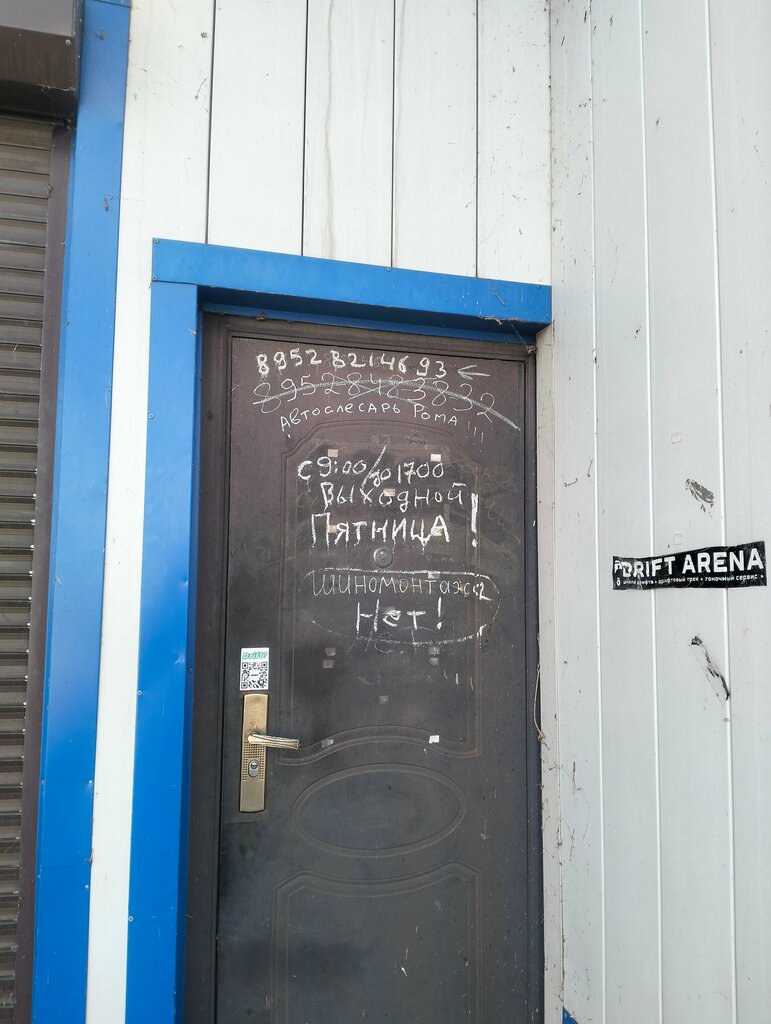 8952 8214693 ←
89528483832
Автослесарь Рома !!!
с 9:00 до 1700
Выходной
Пятница !
Шиномонтажа
Нет!
Drift?
DRIFT ARENA
школа дрифта • дрифтовый трек • гоночный сервис •